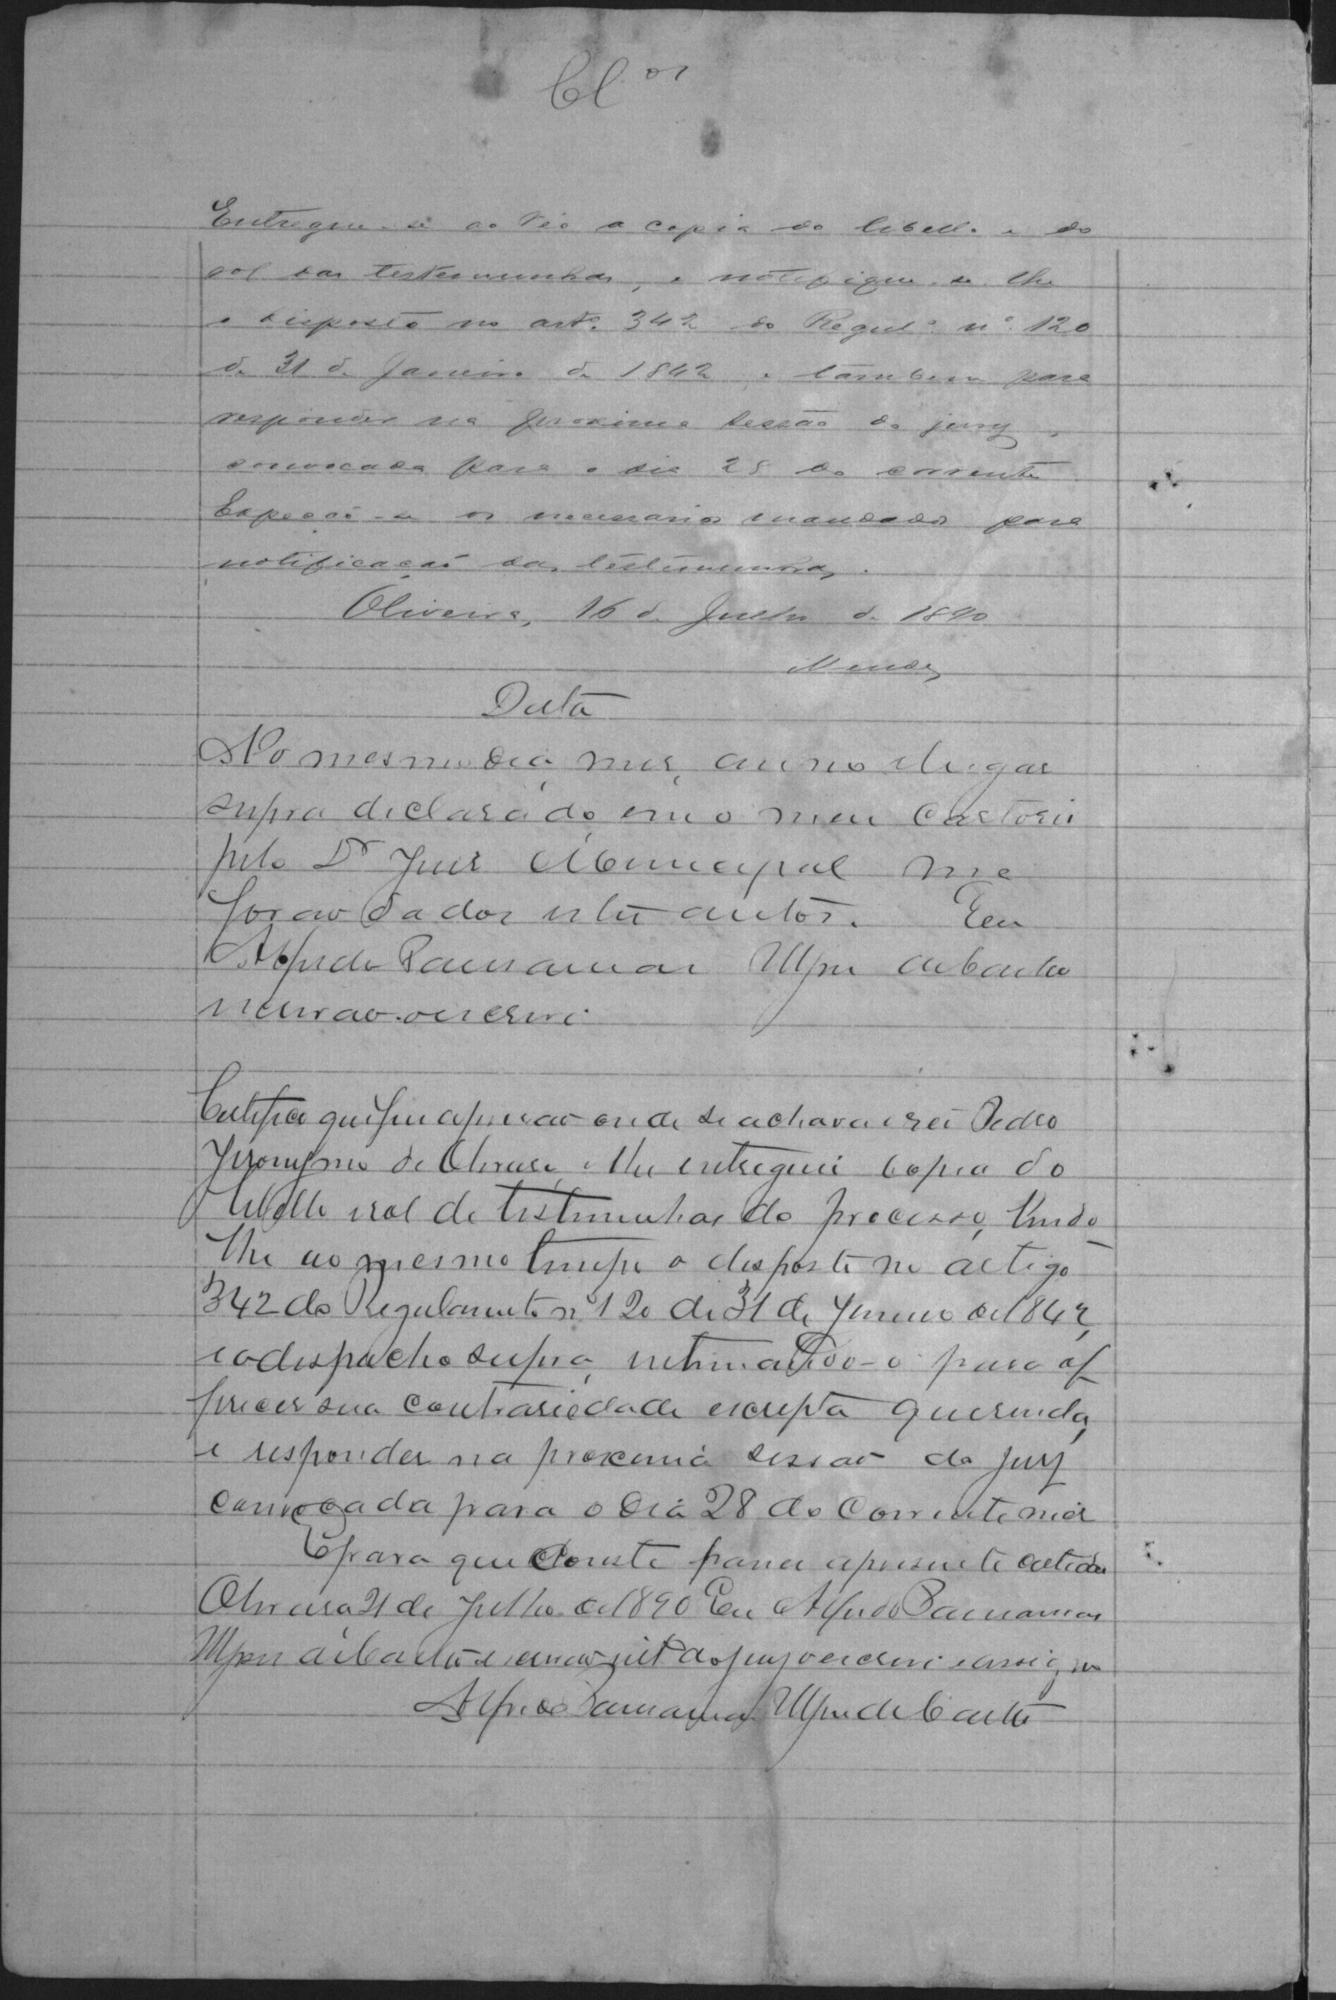 Cl.os
Entregue-se ao réo a copia do libello e do
rol das testemunhas, e notifique-se-lhe
o disposto no art.º 342 do Regul.º nº 120
de 31 de Janeiro de 1842, e tambem para
responder na proxima sessão do jury,
convocada para o dia 28 do corrente.
Expeção-se os necessarios mandados para
notificação das testemunhas.
Oliveira, 16 de Julho de 1890
Mendes
Data
No mesmo dia, mez, anno e lugar
supra declarado, em o meu Cartorio
pelo Dr Juiz Municipal me
forão dados estes autos. Eu
Alfredo
escrivão o escrevi
Certifico que fui a prisão onde se achava o réo Pedro
Jeronymo de Oliveira, e lhe entreguei copia do
libello e rol de testemunhas do processo, lendo
lhe ao mesmo tempo o disposto no artigo
342 do Regulamento nº 120 de 31 de Janeiro de 1842,
e o despacho supra, intimando-o para of
ferecer sua contrariedade escripta querendo,
e responder na proxima sessão do jury
convocada para o dia 28 do corrente mez
E para que conste passei a presente certidão
Oliveira 21 de Julho de 1890 Eu Alfredo
escrivão do jury o escrevi e assigno
Alfredo de Castro